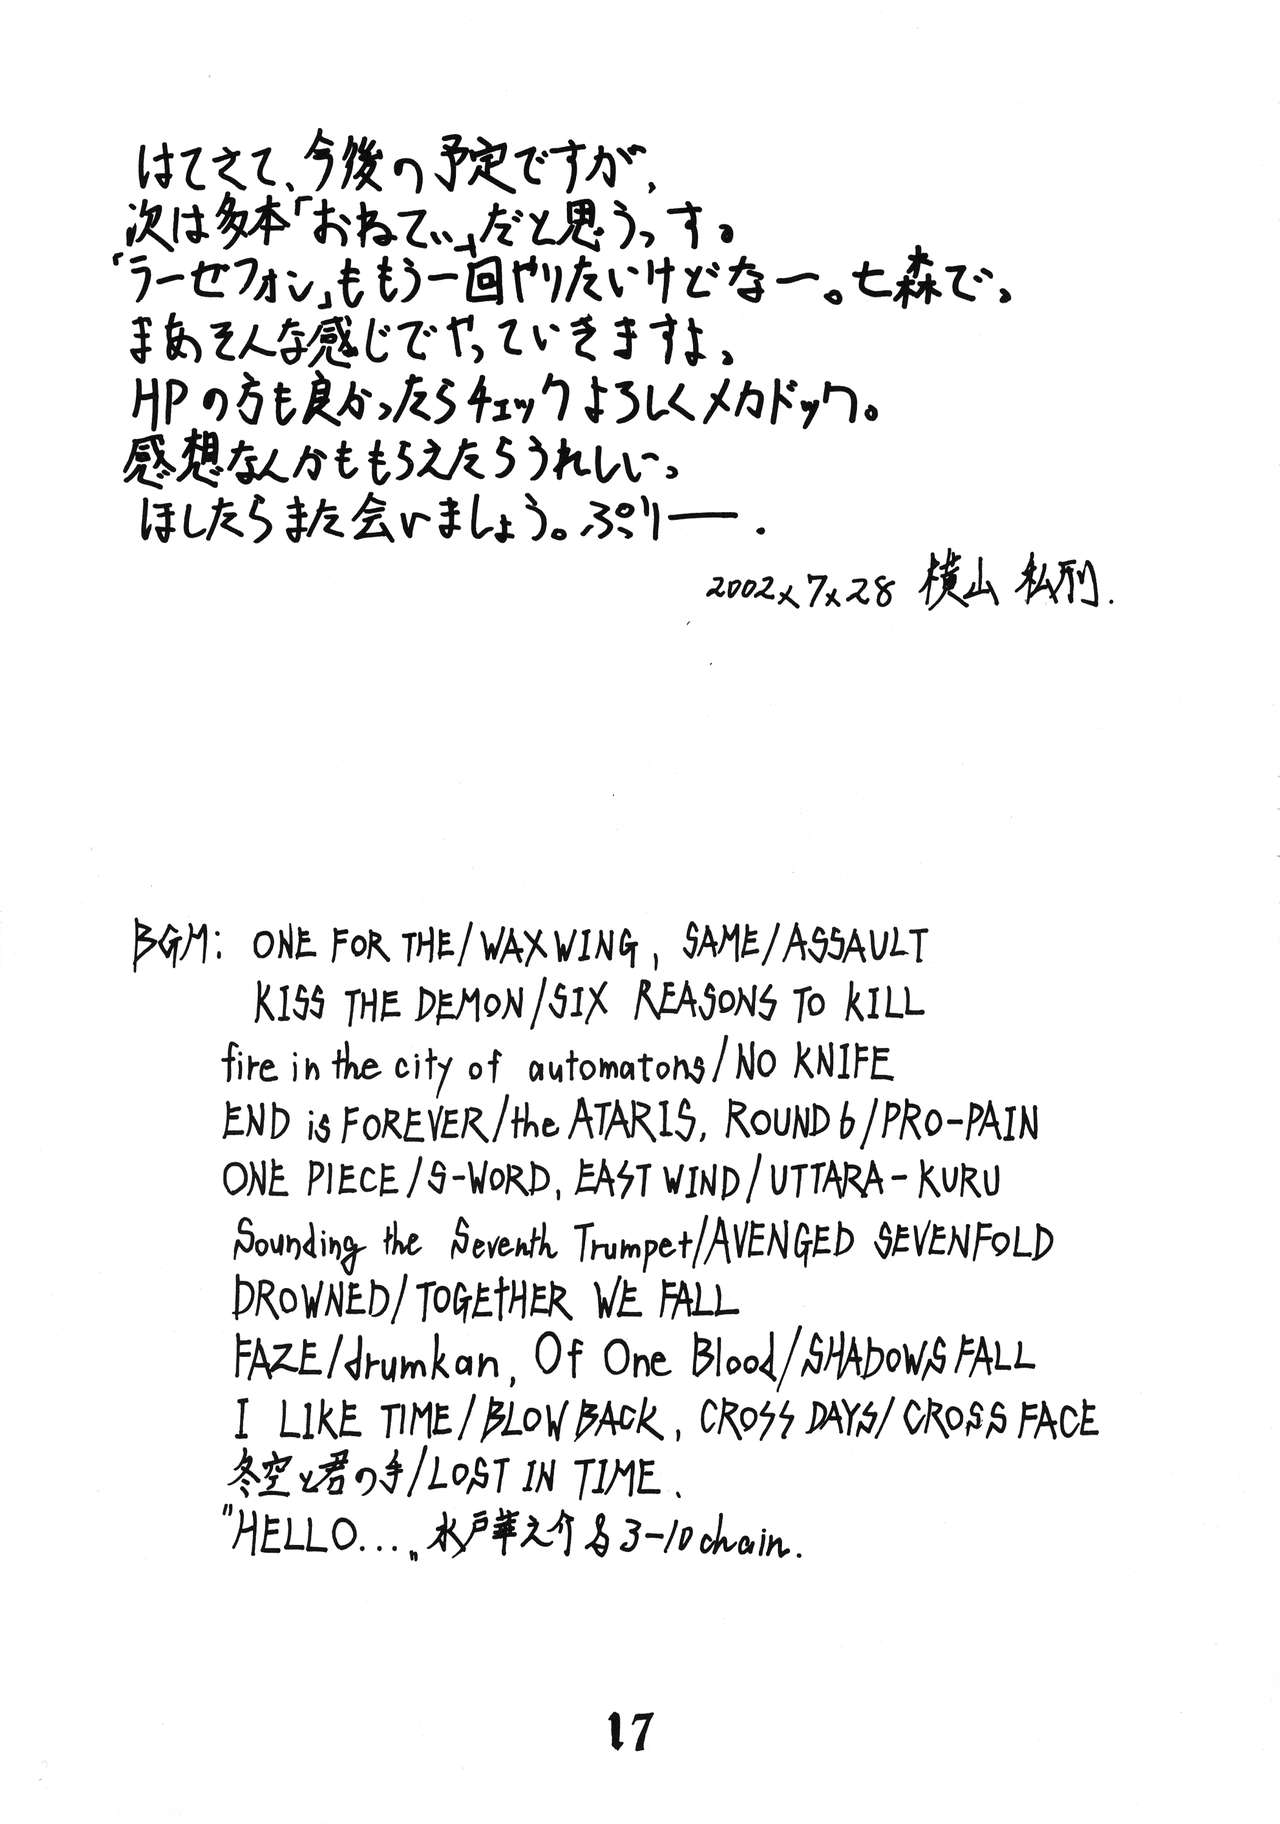 はてさて、今後の予定ですが、
次は多本「おねてぃ」だと思うっす。
「ラーゼフォン」ももう一回やりたいけどなー。七森で。
まあそんな感じでやっていきますよ。
HPの方も良かったらチェックよろしくメカドック。
感想なんかももらえたらうれしい。
ほしたらまた会いましょう。ぷりー.
2002x7x28 横山 私刑.
BGM: ONE FOR THE/WAXWING, SAME/ASSAULT
KISS THE DEMON/SIX REASONS TO KILL
fire in the city of automatons/NO KNIFE
END is FOREVER/the ATARIS, ROUND 6/PRO-PAIN
ONE PIECE/S-WORD, EAST WIND/UTTARA-KURU
Sounding the Seventh Trumpet/AVENGED SEVENFOLD
DROWNED/TOGETHER WE FALL
FAZE/drumkan, Of One Blood/SHADOWS FALL
I LIKE TIME/BLOW BACK, CROSS DAYS/CROSS FACE
冬空と君の手/LOST IN TIME.
"HELLO...„ 水戸華之介&3-10chain.
17